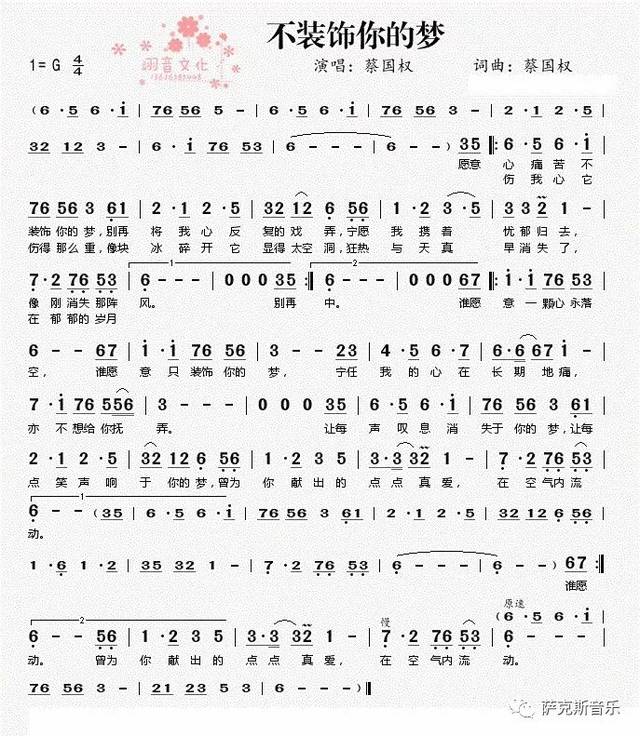 不装饰你的梦
1=G 4/4 翊音文化 演唱：蔡国权 词曲：蔡国权
(6·5 6·i | 76 56 3·5 | 6·5 6·i | 76 56 3 - | 2·1 2·5 |
32 12 3 - | 6·i 76 53 | 6 - - - | 6 - - ) 35 |: 6·5 6·i |
愿意 心痛苦不
伤我心它
76 56 3 61 | 2·1 2·5 | 32 12 3·5 | 1·2 3·5 | 33 2 1 - |
装饰你的梦，别再 将我心反 复的戏弄，宁愿 我携着 忧郁归去，
伤得那么重，像块 冰碎开它 显得太空洞，狂热 与天真 早消失了，
7·2 76 53 | 6 - - - | 0 0 0 35 :| 6 - - - | 0 0 0 67 |: i·i 76 53
像刚消失那阵 风。 别再 中。 谁愿 意一颗心永落
在郁郁的岁月
6 - - 67 | i·i 76 56 | 3 - - 23 | 4·5 6·7 | 6·6 67 i - |
空， 谁愿 意只装饰你的 梦， 宁任 我的心在 长期地痛，
7·i 76 556 | 3 - - - | 0 0 0 35 | 6·5 6·i | 76 56 3 61 |
亦不想给你抚 弄。 让每 声叹息消 失于你的梦，让每
2·1 2·5 | 32 12 3 56 | 1·2 3 5 | 3·3 32 1 - | 7·2 76 53 |
点笑声响 于你的梦，曾为 你献出的 点点真爱， 在空气内流
6 - - (35 | 6·5 6·i | 76 56 3·61 | 2·1 2·5 | 32 12 6 56 |
动。
1·6 1·2 | 35 32 1 - | 7·2 76 53 | 6 - - - | 6 - -) 67 :|
谁愿
原速
慢
(6·5 6·i |
6 - - 56 | 1·2 3 5 | 3·3 32 1 - | 7·2 76 53 | 6 - - -
动。 曾为 你献出的 点点真爱， 在空气内流 动。
76 56 3 - | 21 23 5 3 | 6 - - - )‖
萨克斯音乐